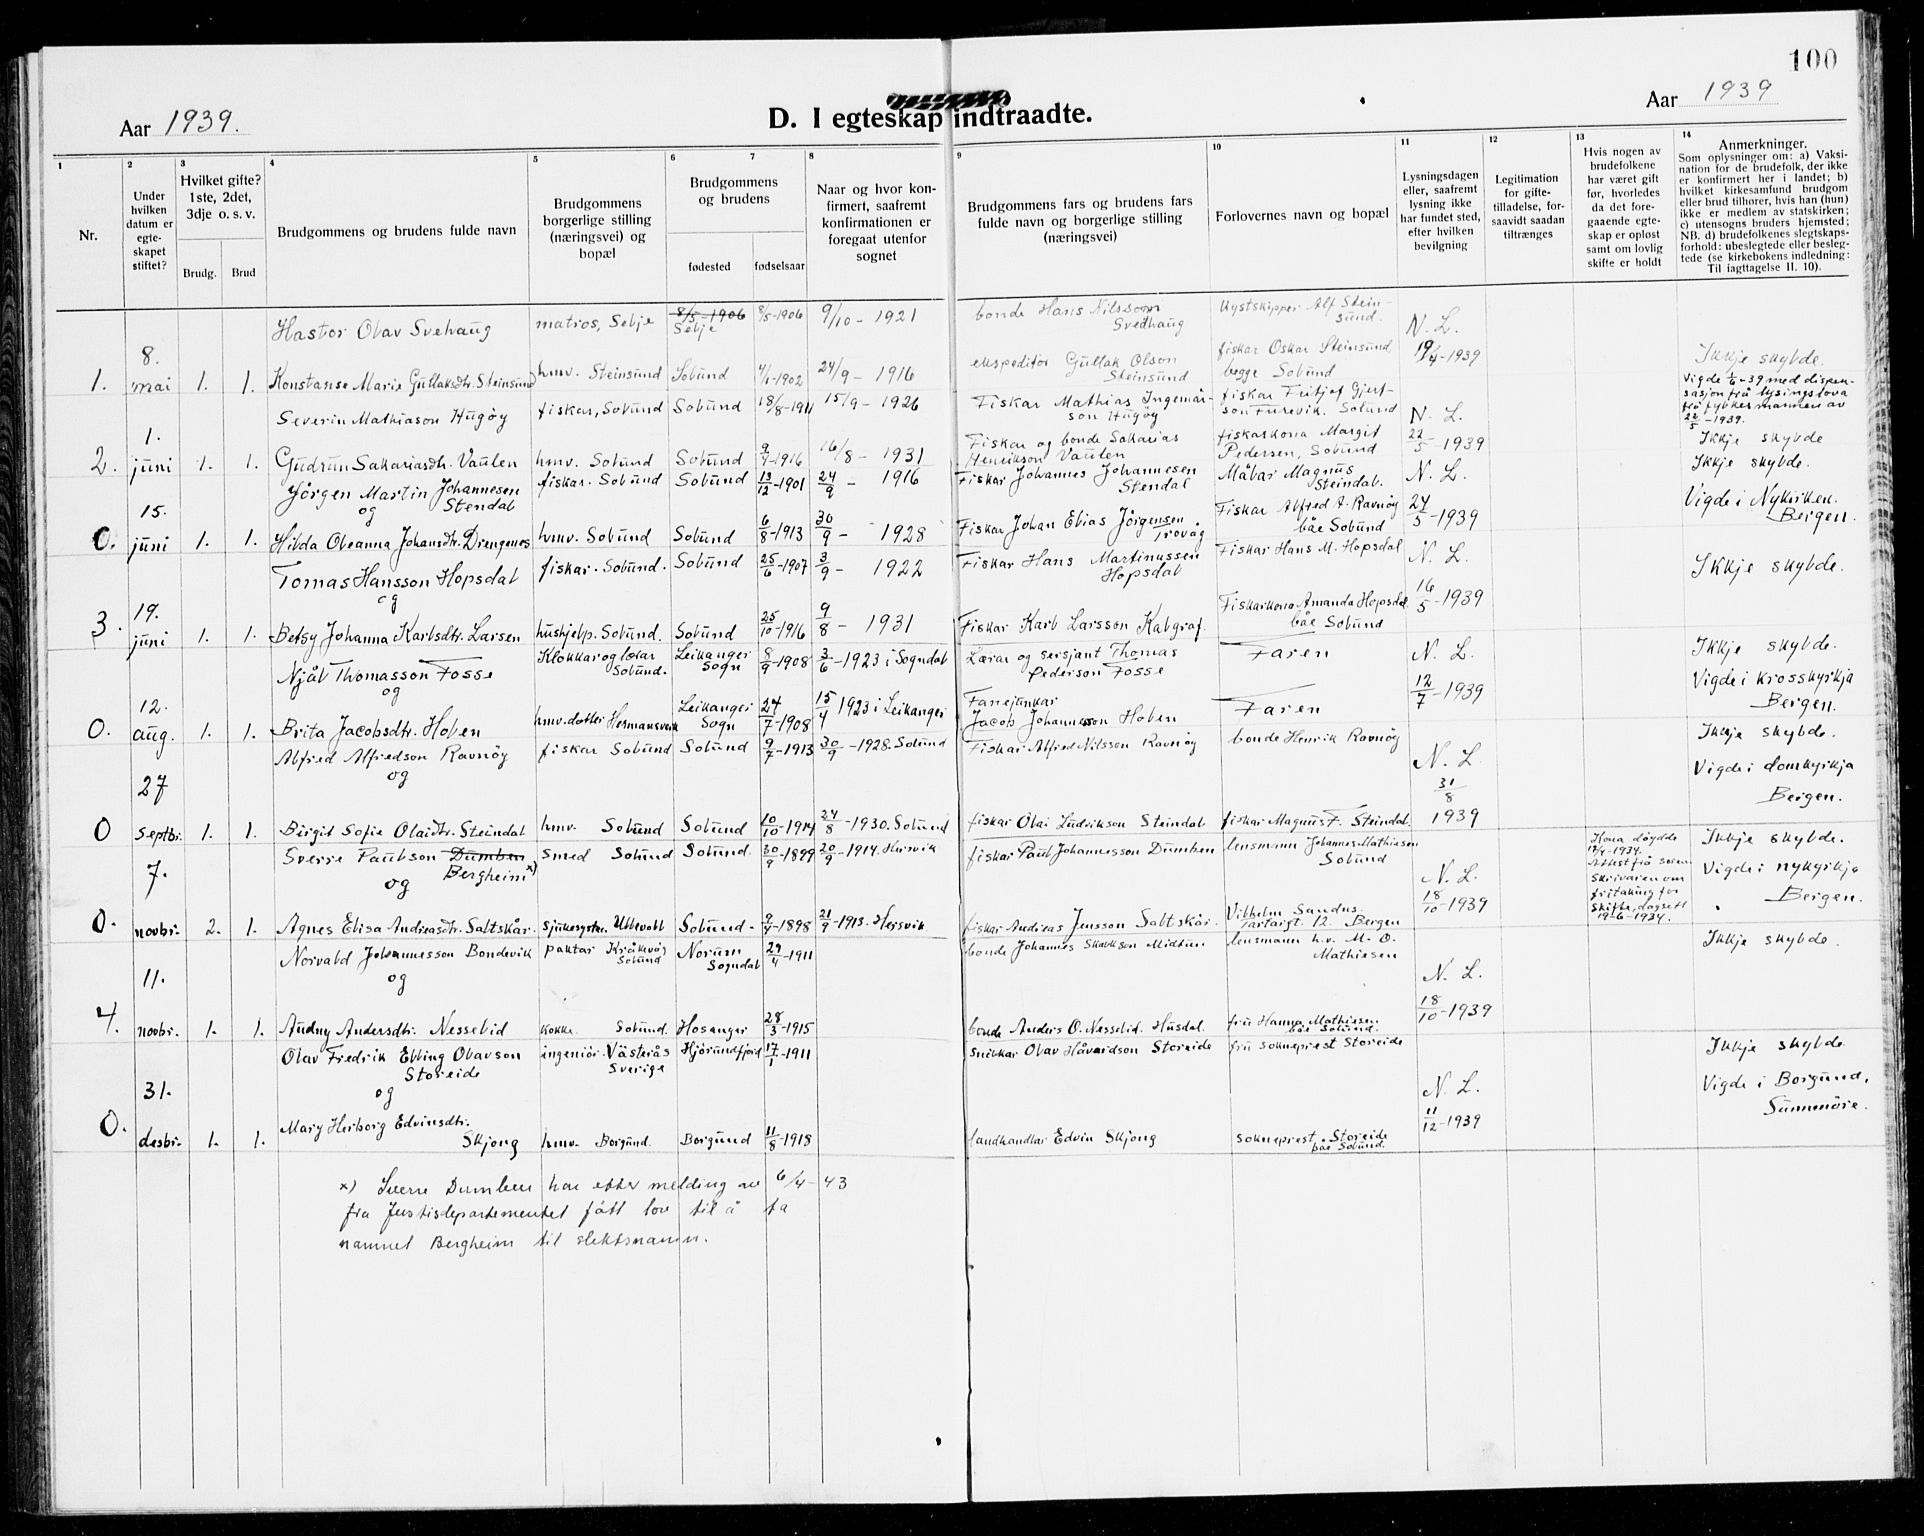 100
Aar 1939.
D. I egteskap indtraadte.
Aar 1939
1
2
3
4
5
6
7
8
9
10
11
12
13
14
Nr.
Under hvilken datum er egte-skapet stiftet?
Hvilket gifte? 1ste, 2det, 3dje o. s. v.
Brudg.
Brud
Brudgommens og brudens fulde navn
Brudgommens borgerlige stilling (næringsvei) og bopæl
Brudgommens og brudens
fødested
fødselsaar
Naar og hvor kon-firmert, saafremt konfirmationen er foregaat utenfor sognet
Brudgommens fars og brudens fars fulde navn og borgerlige stilling (næringsvei)
Forlovernes navn og bopæl
Lysningsdagen eller, saafremt lysning ikke har fundet sted, efter hvilken bevilgning
Legitimation for gifte-tilladelse, for-saavidt saadan tiltrænges
Hvis nogen av brudefolkene har været gift før, hvorledes da det fore-gaaende egte-skap er opløst samt om lovlig skifte er holdt
Anmerkninger.
Som oplysninger om: a) Vaksi-nation for de brudefolk, der ikke er konfirmert her i landet; b) hvilket kirkesamfund brudgom eller brud tilhører, hvis han (hun) ikke er medlem av statskirken; c) utensogns bruders hjemsted; NB. d) brudefolkenes slegtskaps-forhold: ubeslegtede eller besleg-tede (se kirkebokens indledning: Til iagttagelse II. 10).
Hastor Olav Svehaug matros, Selje 8/5-1906 Selje 8/5-1906 9/10 - 1921 bonde Hans Nilsson Svedhaug Kystskipper Alf Steinsund. N. L.
1. 8. mai 1. 1. Konstanse Marie Gullaksdtr. Steinsund hmv. Steinsund Solund 4/1-1902 24/9 - 1916 ekspeditør Gullak Olson Steinsund fiskar Oskar Steinsund, begge Solund 19/4-1939 Ikkje skylde.
Severin Mathiason Hugøy fiskar, Solund Solund 18/8-1911 15/9 - 1926 Fiskar Mathias Ingemarson Hugøy fiskar Fritjof Gjertson Furevik. Solund N. L. Vigde 1/6-39 med dispensasjon frå lysingslova frå fylkesmannen av 22/5-1939.
2. 1. juni 1. 1. Gudrun Sakariasdtr. Vaulen hmv. Solund Solund 9/4-1916 16/8 - 1931 Fiskar og bonde Sakarias Henrikson Vaulen fiskarkona Margit Pedersen, Solund 22/5 1939 Ikkje skylde
Jörgen Martin Johannesen Stendal og fiskar. Solund Solund 13/12-1901 24/9 - 1916 Fiskar Johannes Johannesen Stendal Målar Magnus Steindal. N. L. Ikkje skylde.
0. 15. juni 1. 1. Hilda Oleanna Johansdtr. Drengenes hmv. Solund Solund 6/8-1913 30/9 - 1928 Fiskar Johan Elias Jörgensen Trovåg Fiskar Alfred A. Ravnöy båe Solund 27/5-1939 Vigde i Nykirken. Bergen.
Tomas Hansson Hopsdal og fiskar. Solund. Solund 25/6-1907 3/9 - 1922 Fiskar Hans Martinussen Hopsdal Fiskar Hans M. Hopsdal N. L. Ikkje skylde.
3. 19. juni 1. 1. Betsy Johanna Karlsdtr. Larsen hushjelp. Solund. Solund 25/10-1916 9/8 - 1931 Fiskar Karl Larsson Kalgraf. Fiskarkona Amanda Hopsdal båe Solund 16/5-1939
Njål Thomasson Fosse og Klokkar og lærar Solund. Leikanger Sogn 8/9-1908 3/6-1923 i Sogndal Lærar og sersjant Thomas Pederson Fosse Faren N. L. Ikkje skylde.
0. 12. aug. 1. 1. Brita Jacobsdtr. Holen hmv. dotter Hermansverk Leikanger Sogn 27/7-1908 15/4 1923 i Leikanger Fanejunkar Jacob Johannesson Holen Faren 12/7-1939 Vigde i Krosskyrkja Bergen.
Alfred Alfredson Ravnöy og fiskar Solund Solund 9/7-1913 30/9-1928. Solund Fiskar Alfred Nilsson Ravnöy bonde Henrik Ravnöy N. L. Ikkje skylde.
0 27 septbr. 1. 1. Birgit Sofie Olaidtr. Steindal hmv. Solund Solund 10/10-1914 24/8-1930. Solund fiskar Olai Ludvikson Steindal fiskar Magnus F. Steindal. 31/8 1939 Vigde i domkyrkja Bergen.
Sverre Paulson Dumben Bergheim x) og smed Solund Solund. 30/9-1899 20/9-1914. Hersvik fiskar Paul Johannesson Dumben lensmann Johannes Mathiesen Solund N. L. Kona døydde 17/4-1934. Attest frå sorenskrivaren om fritaking for skifte, dagsett 19-6-1934. Ikkje skylde.
0. 7. novbr. 2. 1. Agnes Elisa Andreasdtr. Saltskår. sjukesyster. Ullevoll Solund. 9/4-1898 21/9-1913. Hersvik fiskar Andreas Jensson Saltskår. Vilhelm Sandus. Tartargt. 12. Bergen 18/10-1939 Vigde i nykyrkja Bergen.
Norvald Johannesson Bondevik og paktar Kråkevåg Solund Norum Sogndal 29/4-1911 bonde Johannes Skarkson Midtun lensmann h.v. M. O. Mathiesen N. L. Ikkje skylde.
4. 11. novbr. 1. 1. Audny Andersdtr. Nesselid kokke Solund. Hosanger 28/3-1915 bonde Anders O. Nesselid. Husdal. fru Hanna Mathiesen båe Solund. 18/10-1939
Olav Fredrik Elling Olavson Storeide og ingeniör. Västerås Sverige Hjörundfjord 17/1-1911 snikkar Olav Håvardson Storeide fru sokneprest Storeide N. L. Ikkje skylde.
0. 31. desbr. 1. 1. Mary Herborg Edvinsdtr. Skjong hmv. Borgund. Borgund 11/8-1918 landhandlar Edvin Skjong sokneprest Storeide båe Solund. 11/12-1939 Vigde i Borgund, Sunnmöre.
x) Sverre Dumben har etter melding av 6/4-43
fra Justisdepartementet fått lov til å ta
namnet Bergheim til slektsnamn.